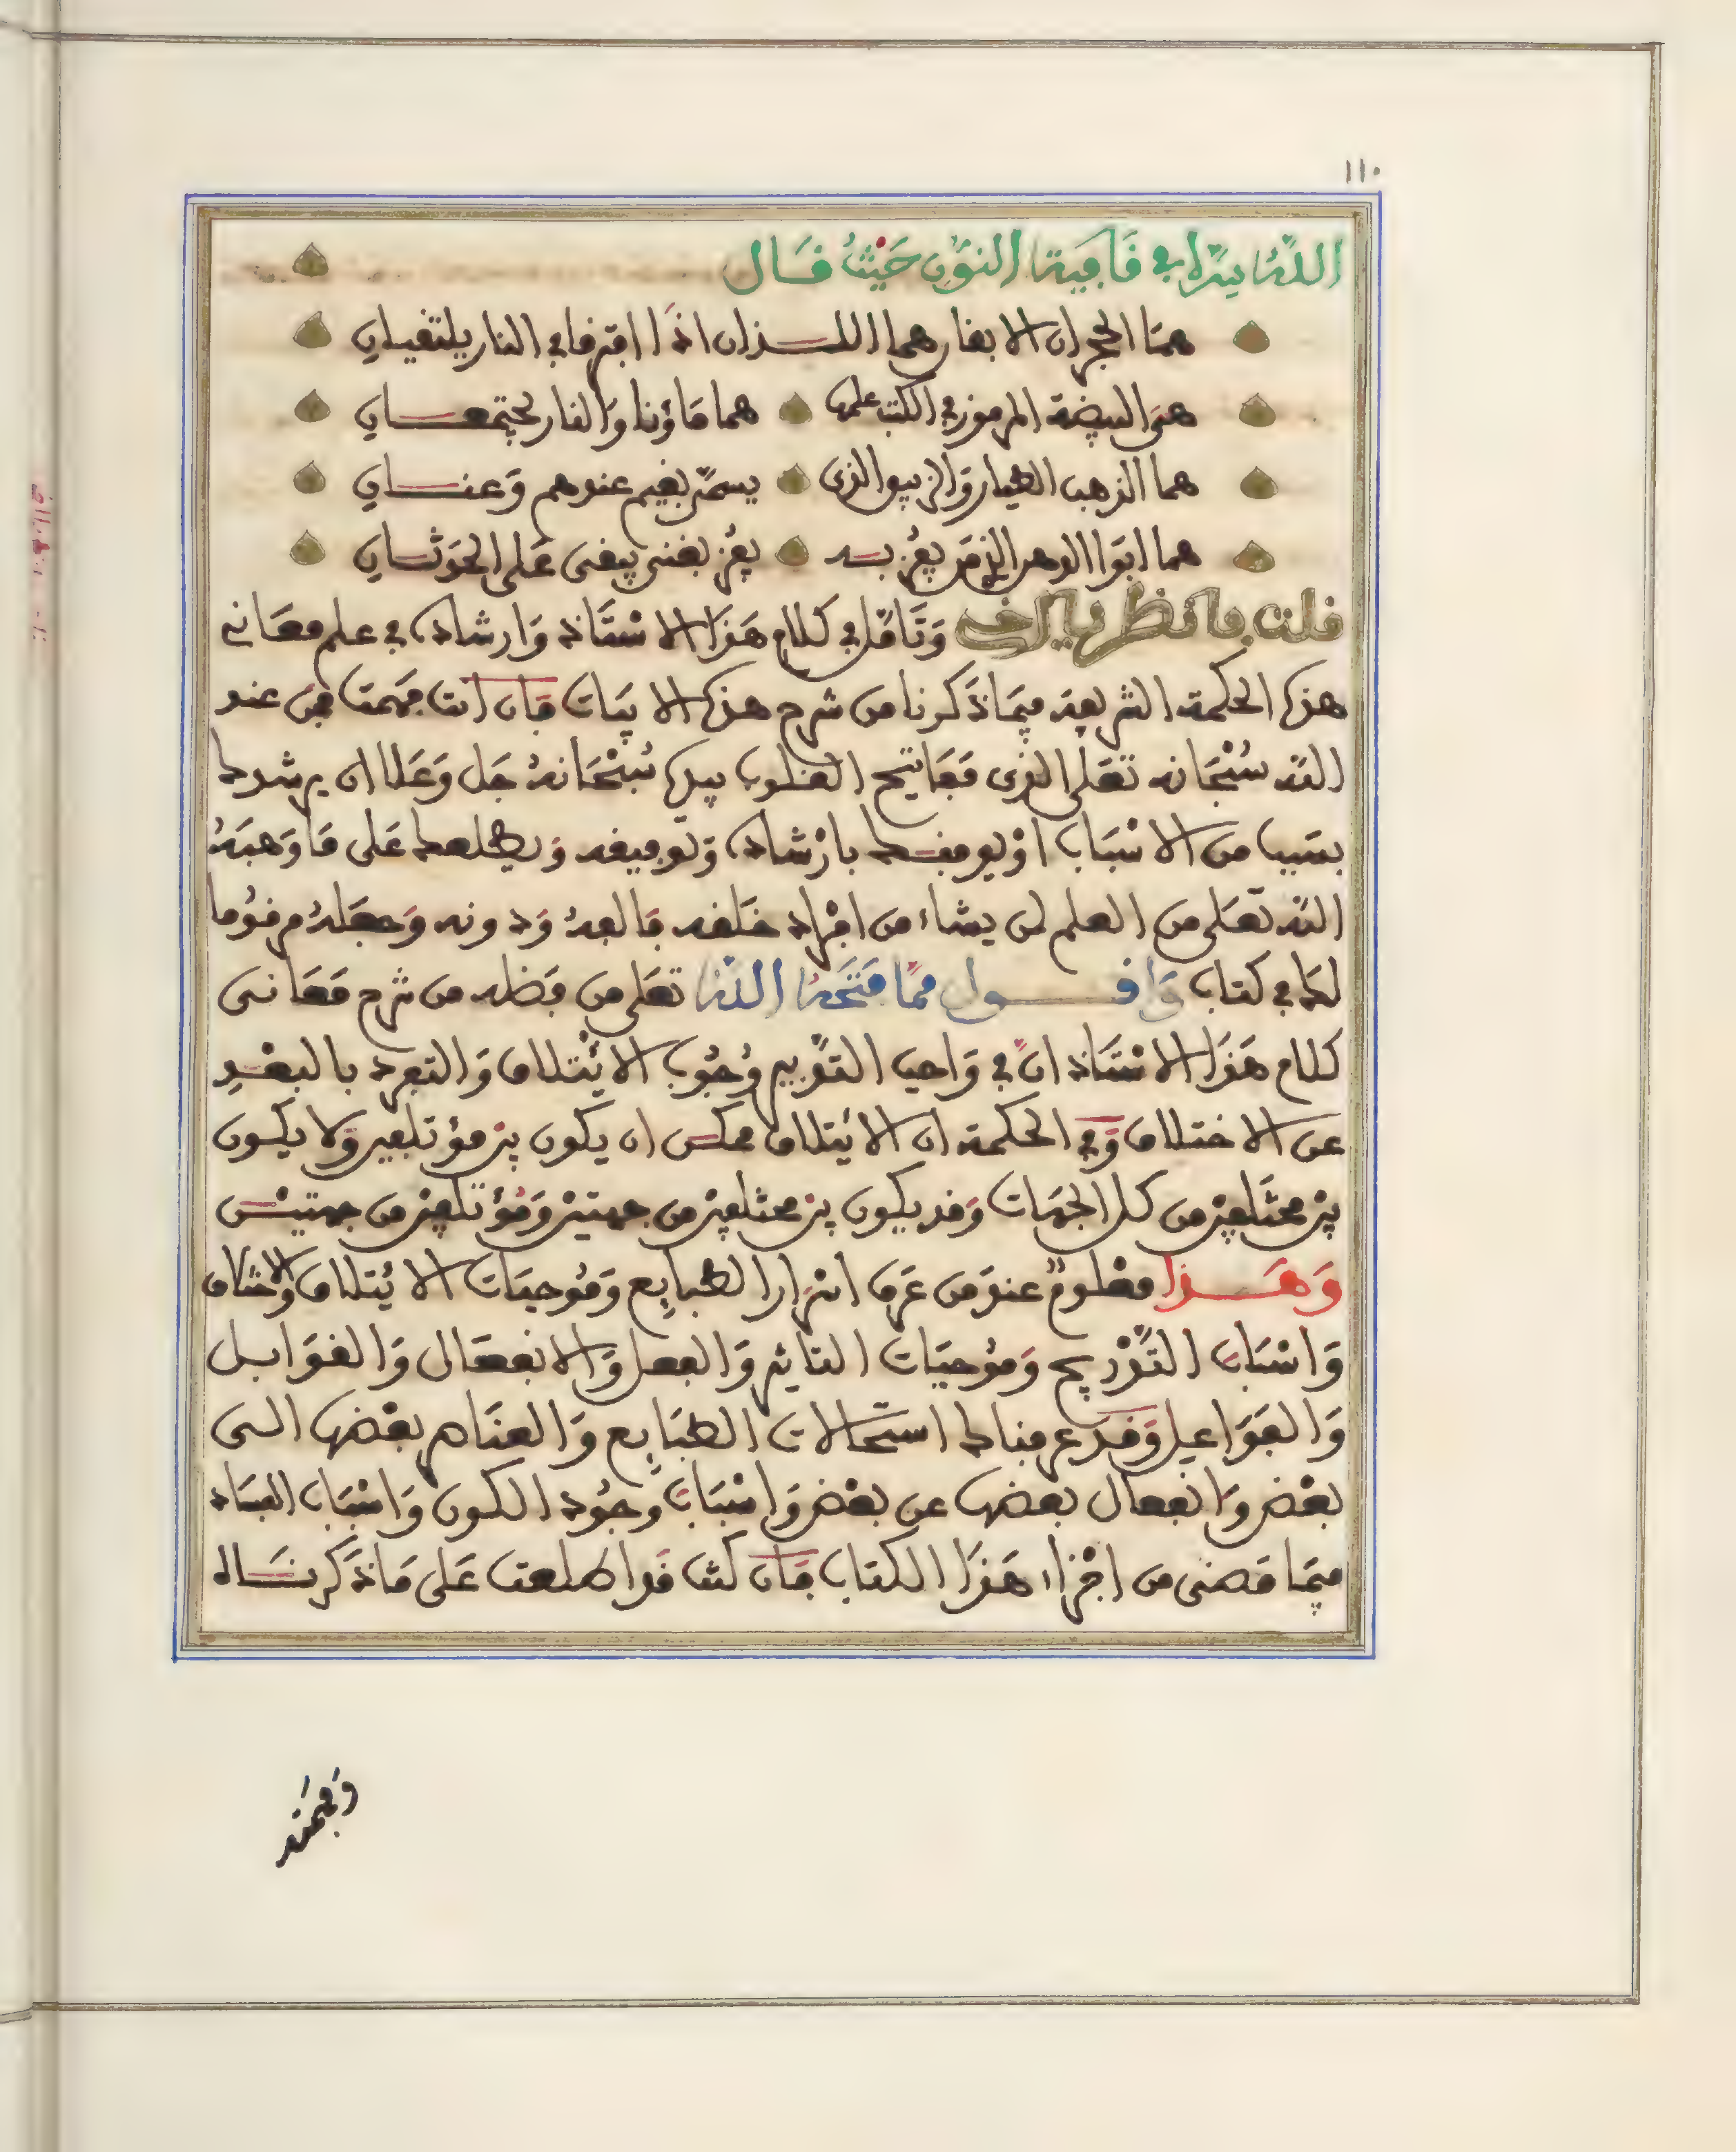 ١١٠
الله سره في قافية النون حيث قال
هما الحجران الابقان هما اللذان اذا افترقا في النار يلتقيان
هي البيضة المرموز في الكتب علمها هما ماؤنا والنار يجتمعان
هما الذهب الطيار والزيبق الذي يسمى بغيم عندهم وعنان
هما ابوا الدهر الذي من يفز به يفز بغنى يبقى على الحدثان
قلت فانظر يا اخي وتامل في كلام هذا الاستاذ وارشاده في علم معاني
هذه الحكمة الشريفة فيما ذكرنا من شرح هذه الابيات فان انت فهمت فمن عند
الله سبحانه تعلى الذي مفاتيح القلوب بيده سبحانه جل وعلا ان يرشدك
بسبب من الاسباب او يوفقك بارشاده وتوفيقه ويطلعك على ما وهبه
الله تعلى من العلم لمن يشاء من افراد خلقه فالفه ودونه وجعله مرقوما
لك في كتاب واقول مما فتحه الله تعلى من فضله من شرح معاني
كلام هذا الاستاذ ان في واجب التدبير وجوب الائتلاف والتفرد بالبعد
عن الاختلاف وفي الحكمة ان الائتلاف ممكن ان يكون بين مؤتلفين ولا يكون
بين مختلفين من كل الجهات وقد يكون بين مختلفين من جهتين ومؤتلفين من جهتين
وهذا معلوم عند من عرف اسرار الطبايع وموجبات الائتلاف والاختلاف
واسباب التدريج وموجبات التاثير والفعل والانفعال والقوابل
والفواعيل وقد عرفناك استحالات الطبايع والعناصر بعضها الى
بعض وانفعال بعضها عن بعض واسباب وجود الكون واسباب الفساد
فيما مضى من اجزاء هذا الكتاب فان كنت قد اطلعت على ما ذكرناه
وفهمته